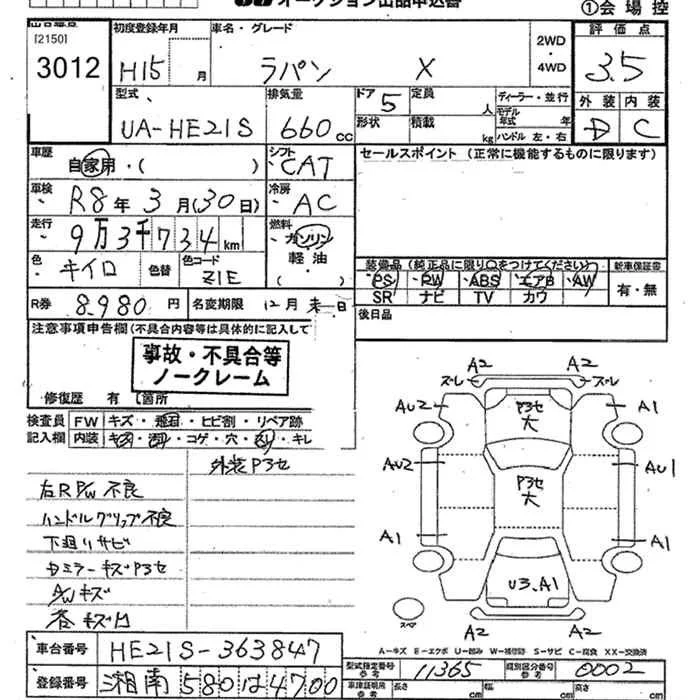 オークション出品申込書
①会場控
[2150]
3012
初度登録年月
H15 月
車名・グレード
ラパン X
2WD
・
4WD
評価点
3.5
外装 内装
D C
型式
UA-HE21S
排気量
660 cc
ドア
5
定員
人
形状
積載
kg
ディーラー・並行
モデル年式 年
ハンドル 左・右
車歴
自家用・( )
シフト
CAT
セールスポイント (正常に機能するものに限ります)
車検
R8年3月(30日)
冷房
AC
走行
9万3千734km
燃料
ガソリン
軽油
( )
色
キイロ
色替
色コード
Z1E
装備品 (純正品に限り○をつけてください)
PS PW ABS エアB AW
SR ナビ TV カワ
新車保証書
有・無
R券
8,980円
名変期限
12月末日
後日品
注意事項申告欄(不具合内容等は具体的に記入して
事故・不具合等
ノークレーム
修復歴 有 [箇所
検査員
記入欄
FW キズ・飛石・ヒビ割・リペア跡
内装 キズ・コゲ・穴・キレ
外装P3セ
右R P/W 不良
ハンドルグリップ不良
下廻りサビ
ミラーキズP3セ
A/Wキズ
各キズ凹
A2 A2
ズレ ズレ
AU2 P3セ大 A1
AU2 P3セ大 AU1
A1 A1
U3.A1
A2 A2
スペア
A-キズ E-エクボ U-凹み W-補修跡 S-サビ C-腐食 XX-交換済
車台番号
HE21S-363847
登録番号
湘南 580 は 4700
型式指定番号
参考
11365
類別区分番号
参考
0002
車庫証明用
参考
長さ cm 幅 cm 高さ cm